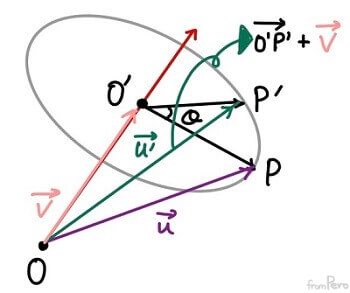 O'P' + v
O'
P'
θ
u'
P
v
u
O
from Pero